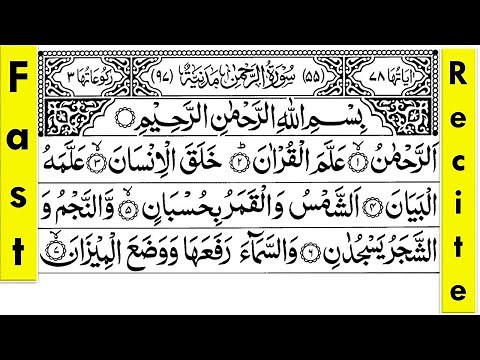 Fast
Recite
اٰيَاتُهَا ٧٨ (٥٥) سُوْرَةُ الرَّحْمٰنِ مَدَنِيَّةٌ (٩٧) رُكُوْعَاتُهَا ٣
بِسْمِ اللّٰهِ الرَّحْمٰنِ الرَّحِيْمِ
اَلرَّحْمٰنُ ۙ﴿١﴾ عَلَّمَ الْقُرْاٰنَ ؕ﴿٢﴾ خَلَقَ الْاِنْسَانَ ۙ﴿٣﴾ عَلَّمَهُ
الْبَيَانَ ﴿٤﴾ اَلشَّمْسُ وَالْقَمَرُ بِحُسْبَانٍ ۙ﴿٥﴾ وَّالنَّجْمُ وَ
الشَّجَرُ يَسْجُدٰنِ ﴿٦﴾ وَالسَّمَآءَ رَفَعَهَا وَوَضَعَ الْمِيْزَانَ ۙ﴿٧﴾